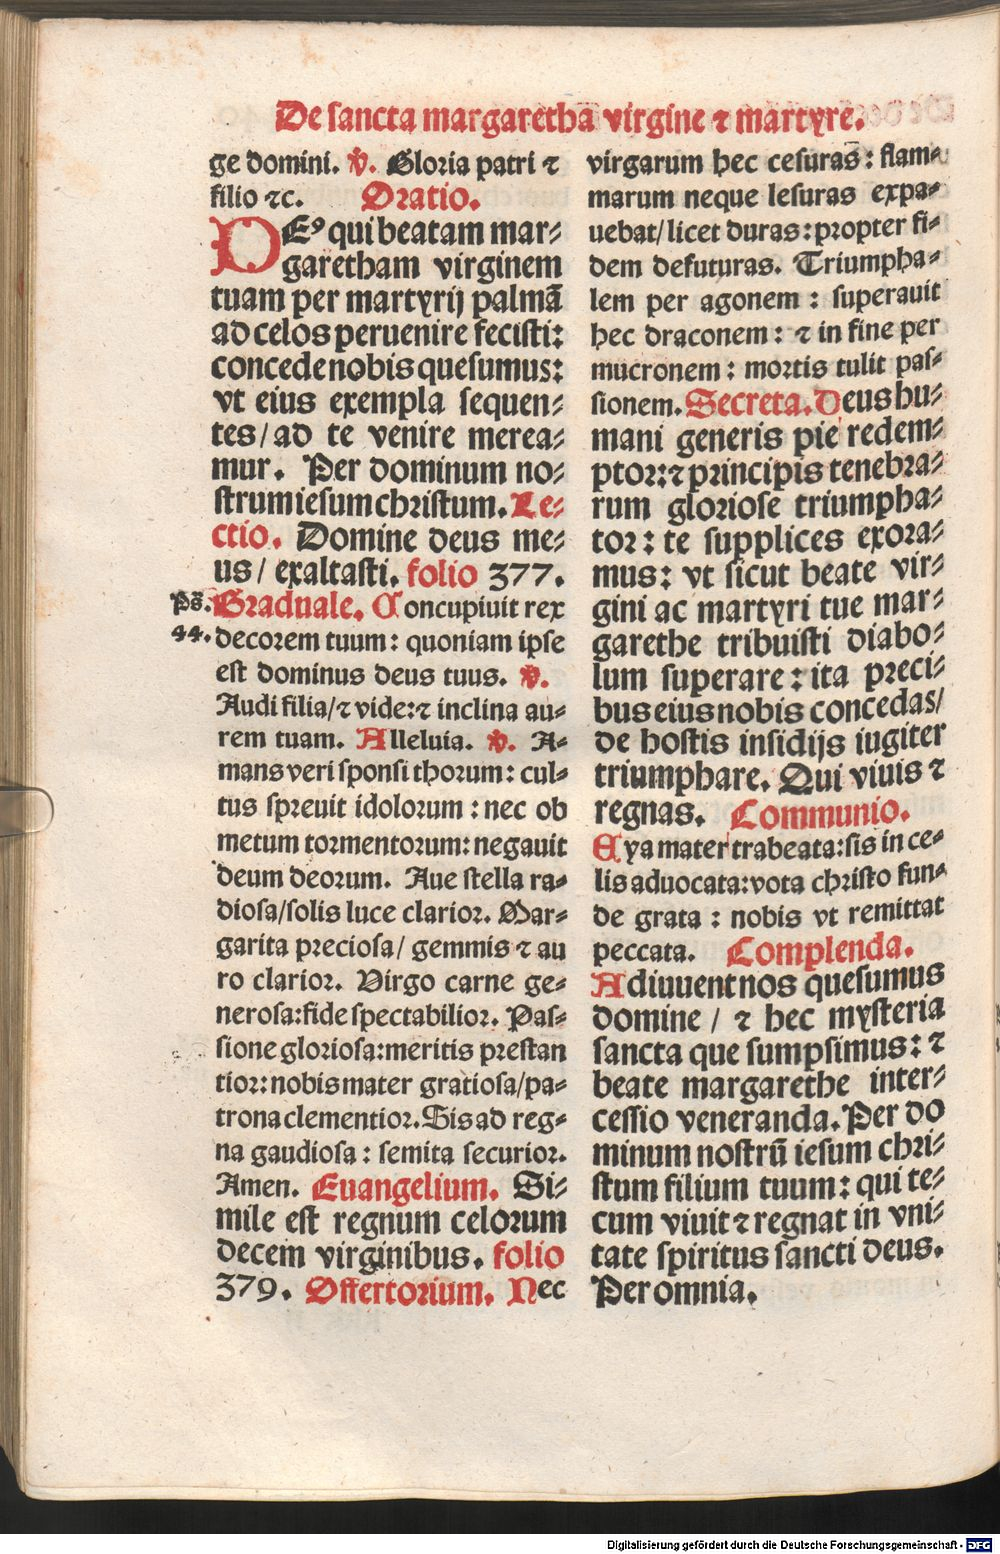 De sancta margaretha virgine ⁊ martyre.
ge domini. ℣. Gloria patri ⁊
filio ⁊c. Oratio.
DEꝰ qui beatam mar⸗
garetham virginem
tuam per martyrij palmā
ad celos peruenire fecisti:
concede nobis quesumus:
vt eius exempla sequen⸗
tes/ad te venire merea⸗
mur. Per dominum no⸗
strum iesum christum. Le⸗
ctio. Domine deus me⸗
us/ exaltasti. folio 377.
Ps̄. Graduale. Concupiuit rex
44. decorem tuum: quoniam ipse
est dominus deus tuus. ℣.
Audi filia/⁊ vide:⁊ inclina au⸗
rem tuam. Alleluia. ℣. A⸗
mans veri sponsi thorum: cul⸗
tus spreuit idolorum: nec ob
metum tormentorum: negauit
deum deorum. Aue stella ra⸗
diosa/solis luce clarior. Mar⸗
garita preciosa/ gemmis ⁊ au
ro clarior. Virgo carne ge⸗
nerosa:fide spectabilior. Pas⸗
sione gloriosa:meritis prestan
tior:nobis mater gratiosa/pa⸗
trona clementior. Sis ad reg⸗
na gaudiosa: semita securior.
Amen. Euangelium. Si⸗
mile est regnum celorum
decem virginibus. folio
379. Offertorium. Nec
virgarum hec cesuras: flam⸗
marum neque lesuras expa⸗
uebat/licet duras:propter fi⸗
dem defuturas. Triumpha⸗
lem per agonem: superauit
hec draconem: ⁊ in fine per
mucronem: mortis tulit pas⸗
sionem. Secreta. Deus hu⸗
mani generis pie redem⸗
ptor:⁊ principis tenebra⸗
rum gloriose triumpha⸗
tor: te supplices exora⸗
mus: vt sicut beate vir⸗
gini ac martyri tue mar⸗
garethe tribuisti diabo⸗
lum superare: ita preci⸗
bus eius nobis concedas/
de hostis insidijs iugiter
triumphare. Qui viuis ⁊
regnas. Communio.
Eya mater trabeata:sis in ce⸗
lis aduocata:vota christo fun⸗
de grata: nobis vt remittat
peccata. Complenda.
Adiuuent nos quesumus
domine/ ⁊ hec mysteria
sancta que sumpsimus: ⁊
beate margarethe inter⸗
cessio veneranda. Per do
minum nostrū iesum chri⸗
stum filium tuum: qui te⸗
cum viuit ⁊ regnat in vni⸗
tate spiritus sancti deus.
Per omnia.
Digitalisierung gefördert durch die Deutsche Forschungsgemeinschaft - DFG